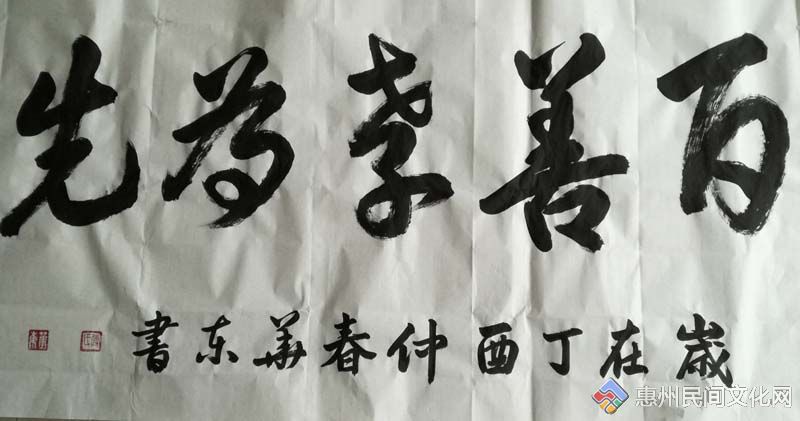 百善孝为先
歲在丁酉仲春華东書
惠州民间文化网